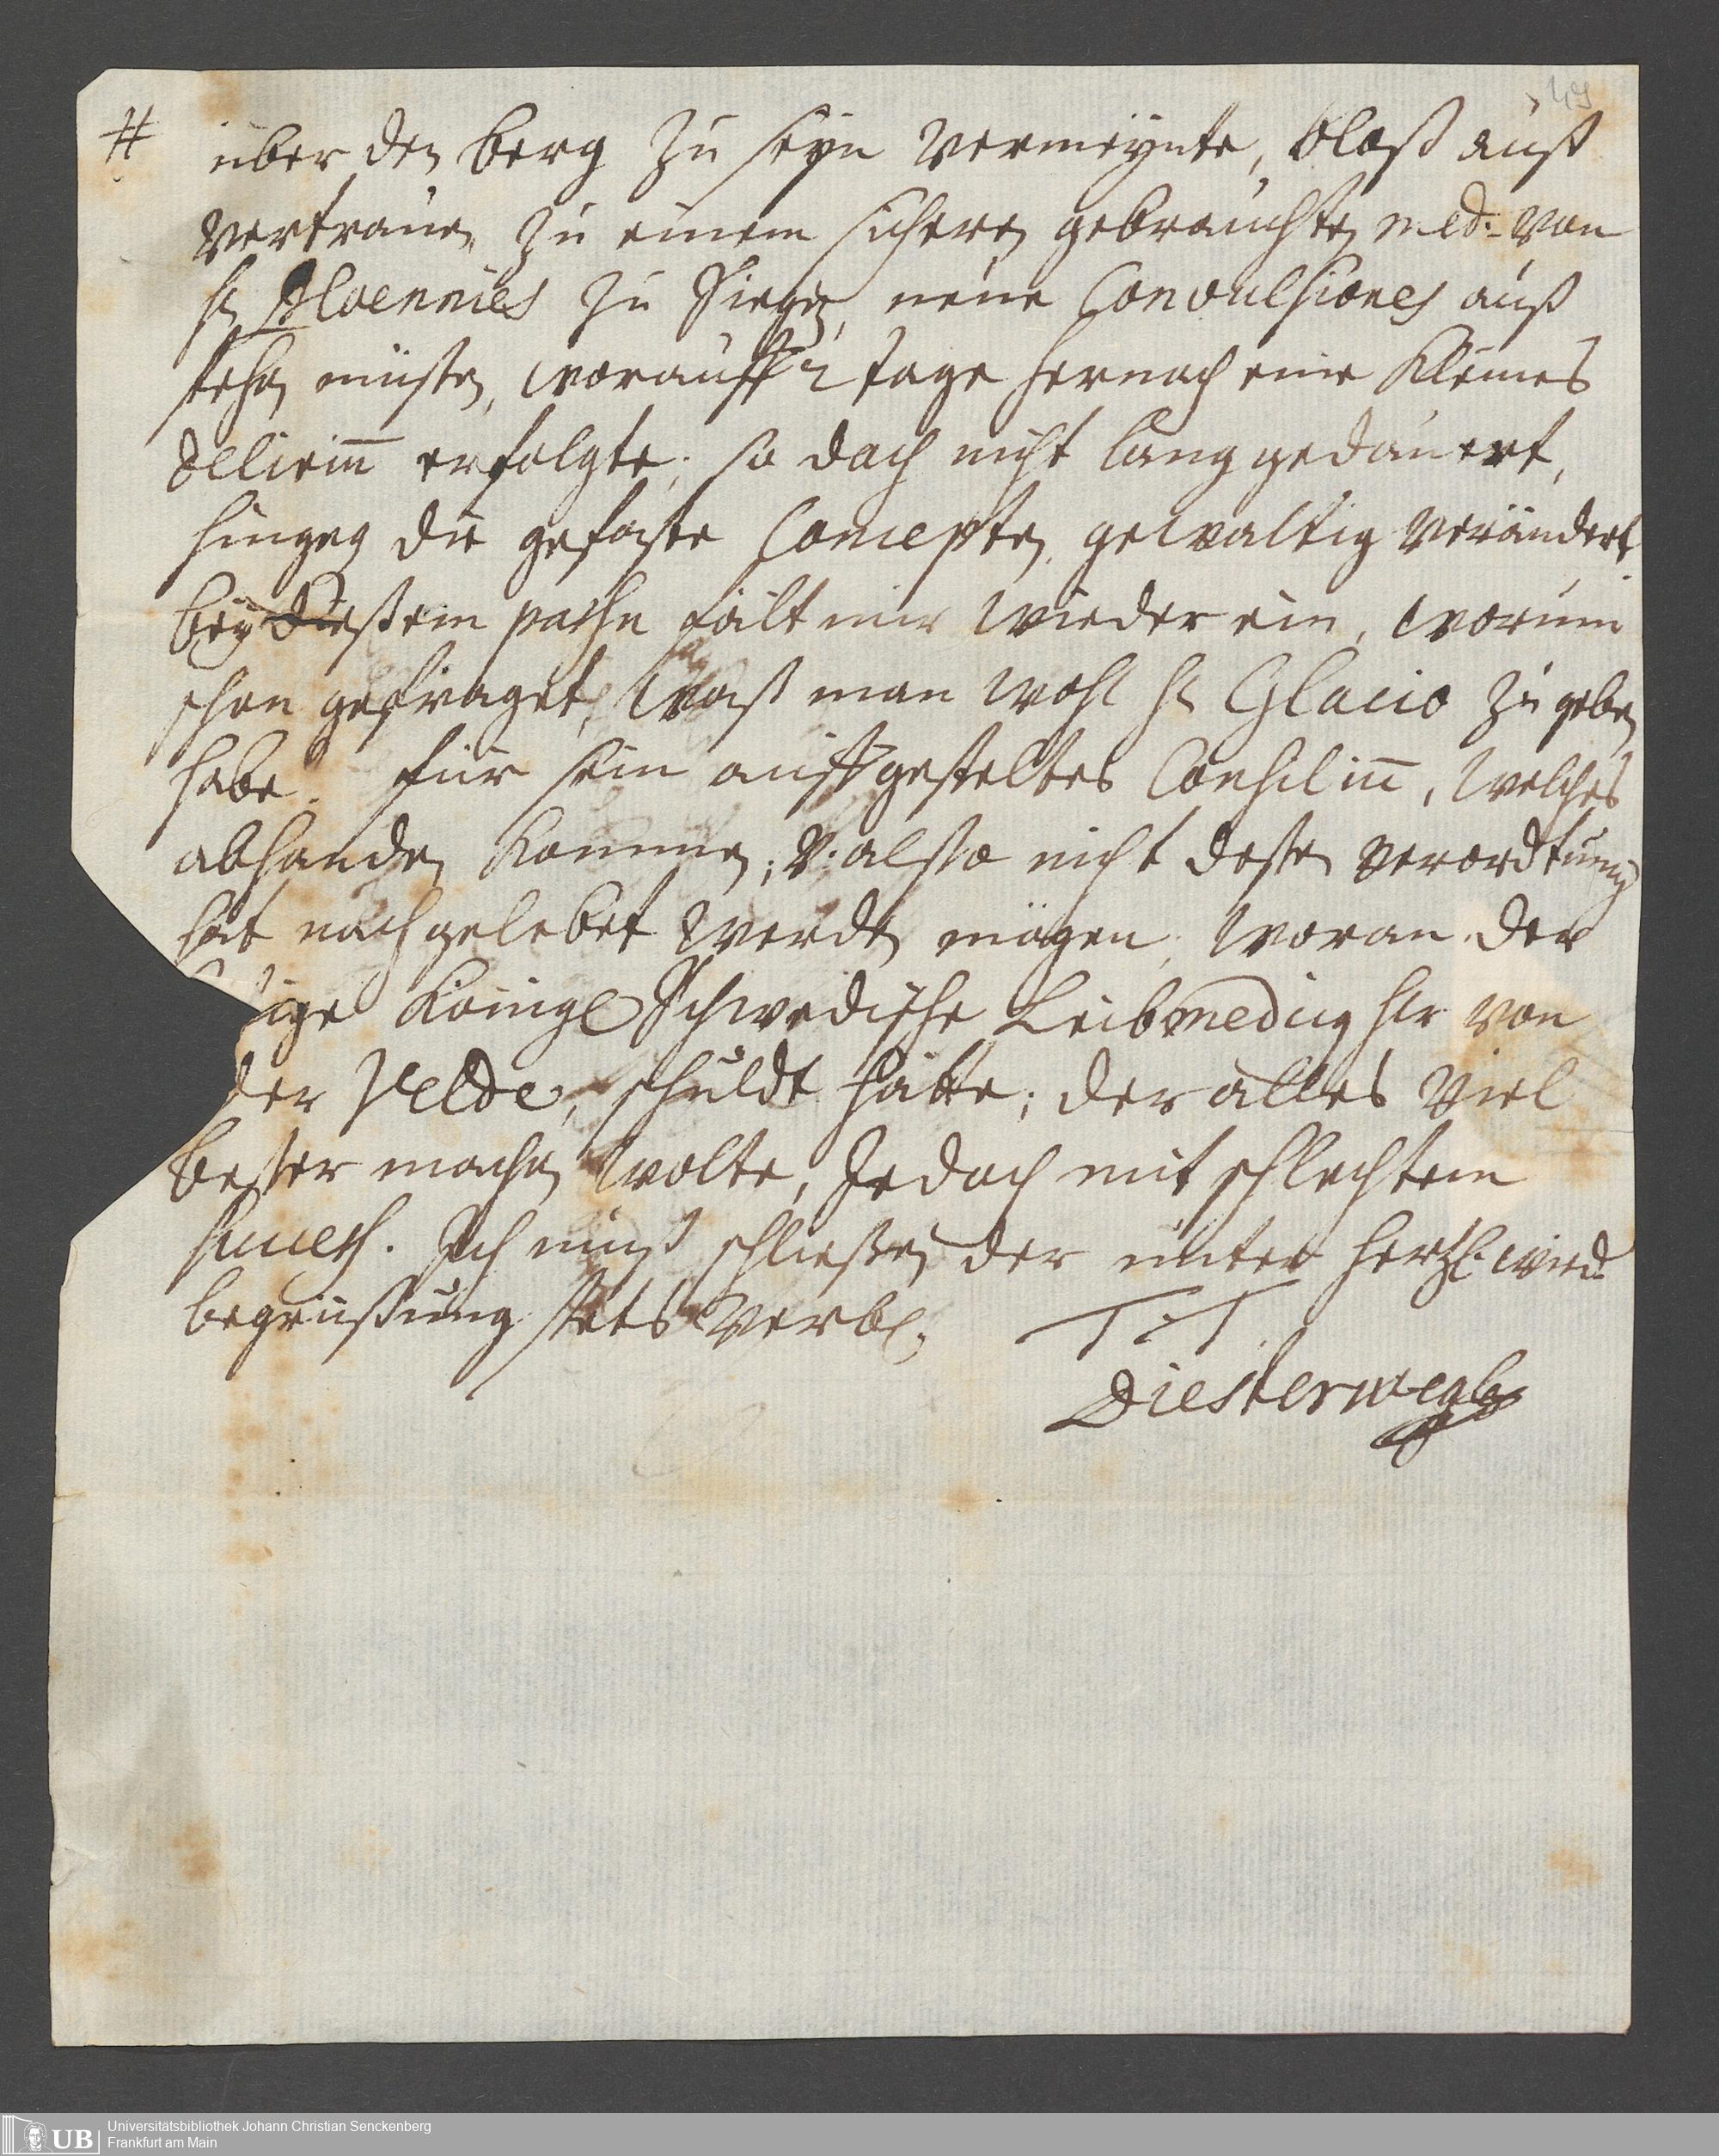 49
# über den berg zu seyn vermeÿnte, bloß auß
vertrauen zu einem sicheren gebrauchten med: von
H Ploennies zu Siegen, neue Convulsiones auß
stehen müßen, worauff 2 tage hernach ein kleines
deliriū erfolgte; so doch nicht lang gedauert,
hingegen die gefaste Concepten gewaltig verändert.
beÿ dießem passu fält mir wieder ein, worum
schon gefraget, waß man wohl H Glacio zu geben
habe für sein auffgesteltes Consiliū, welches
abhanden kommen; v. also nicht deßen verordtnung
hat nachgelebet werden mögen, woran der
ige königl Schwedische Leibmedicus Hr von
der Velde, schuldt hätte; der alles viel
beßer machen wolte, Jedoch mit schlechtem
succeß. Ich muß schließen der unter hertzl. wied.
begrüßung stets verbl.
T. T.
Diesterweg
UB Universitätsbibliothek Johann Christian Senckenberg
Frankfurt am Main